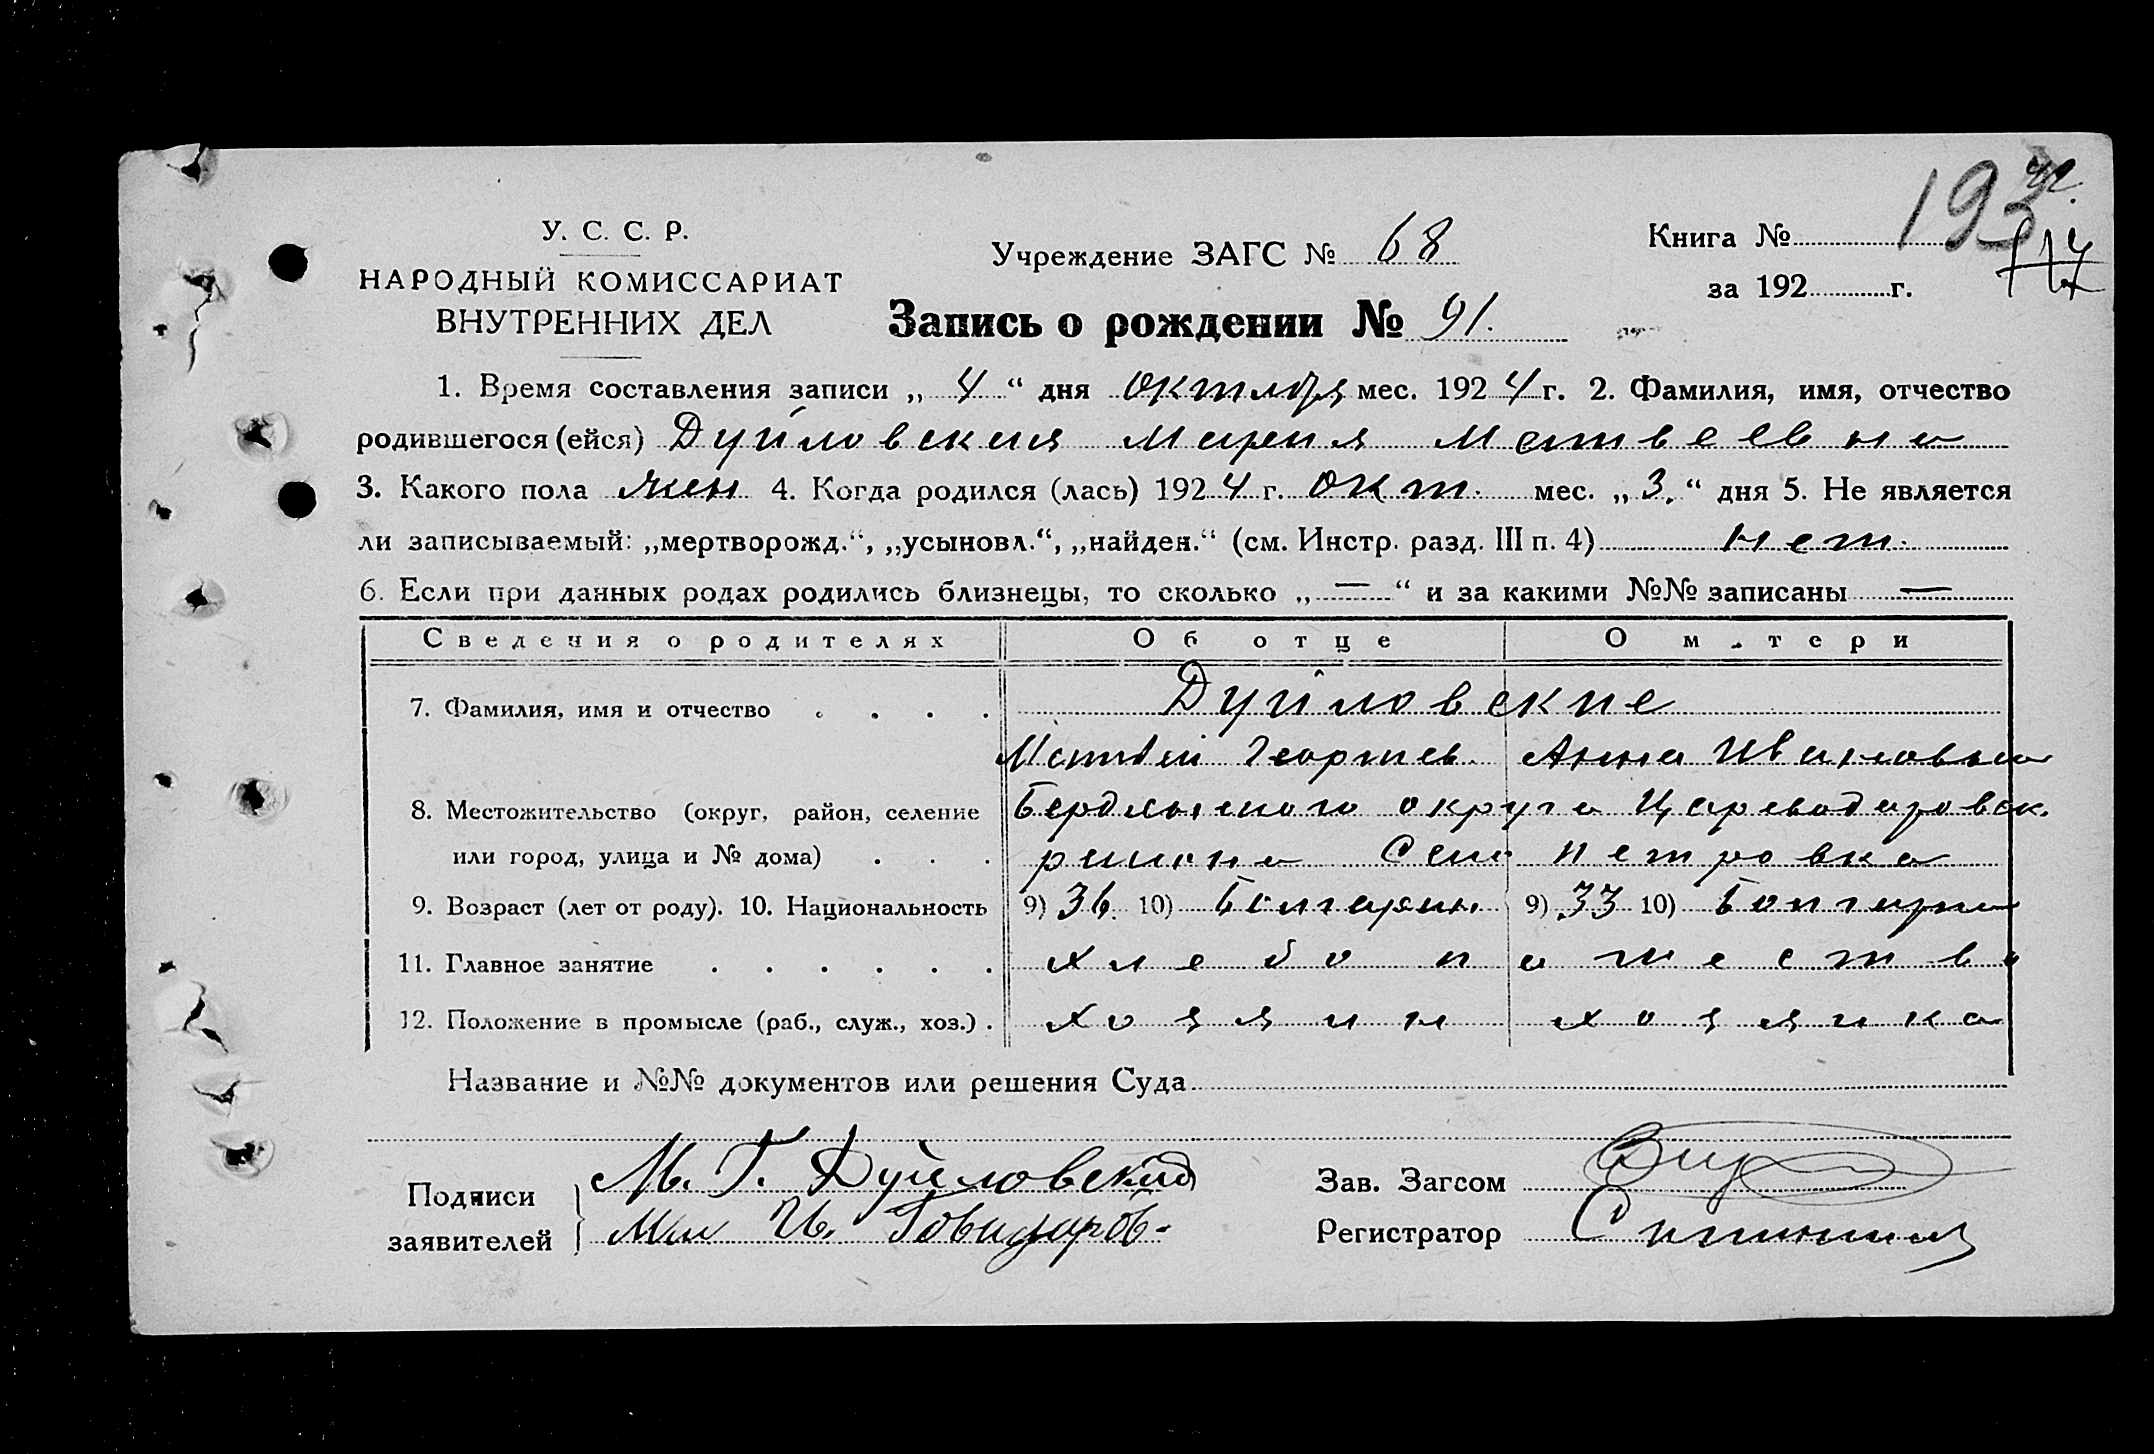 192
У. С. С. Р.
НАРОДНЫЙ КОМИССАРИАТ
ВНУТРЕННИХ ДЕЛ
Учреждение ЗАГС № 68
Книга №
за 192 г.
Запись о рождении № 91.
1. Время составления записи „ 4 “ дня октября мес. 192 4 г. 2. Фамилия, имя, отчество
родившегося (ейся) Дуйловская Мария Матвеевна
3. Какого пола жен 4. Когда родился (лась) 192 4 г. окт. мес. „ 3. “ дня 5. Не является
ли записываемый: „мертворожд.“, „усыновл.“, „найден.“ (см. Инстр. разд. III п. 4) нет.
6. Если при данных родах родились близнецы, то сколько „ — “ и за какими №№ записаны —
Сведения о родителях Об отце О матери
7. Фамилия, имя и отчество . . . . Дуйловские
Матвей Георгиев. Анна Ивановна
8. Местожительство (округ, район, селение Бердянского округа Цареводаровск.
или город, улица и № дома) . . . района Село Петровка
9. Возраст (лет от роду). 10. Национальность 9) 36. 10) Болгарин 9) 33 10) Болгарка
11. Главное занятие . . . . . . хлебопашество
12. Положение в промысле (раб., служ., хоз.) . хозяин хозяйка
Название и №№ документов или решения Суда
Подписи
заявителей
М. Г. Дуйловский
Зав. Загсом
Регистратор